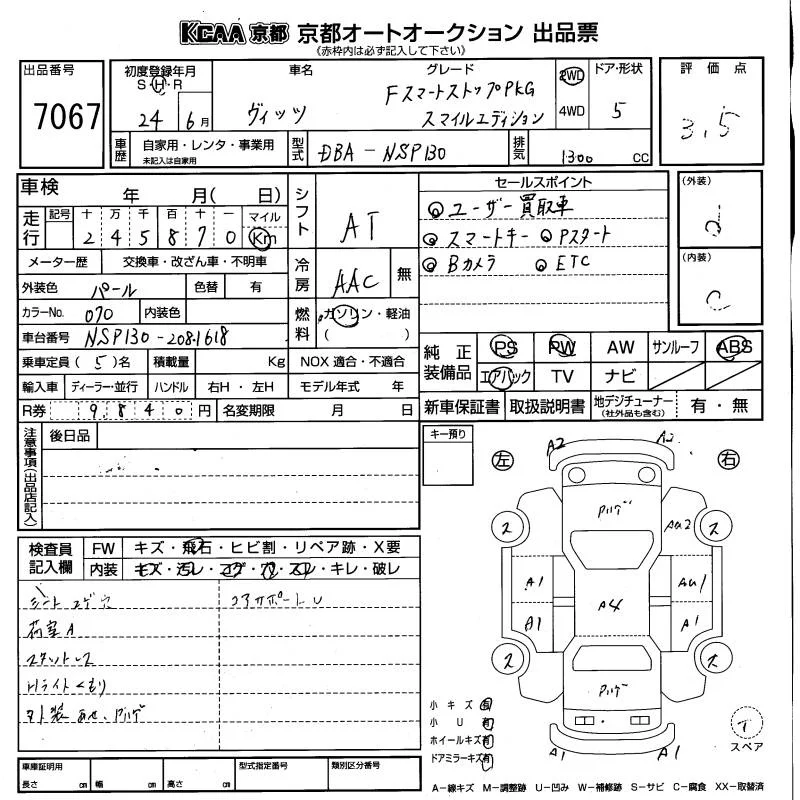 KCAA 京都 京都オートオークション 出品票
(赤枠内は必ず記入して下さい)
出品番号
7067
初度登録年月
S・H・R
24 6月
車名
ヴィッツ
グレード
FスマートストップPKG
スマイルエディション
2WD
4WD
ドア・形状
5
評価点
3.5
車歴
自家用・レンタ・事業用
未記入は自家用
型式
DBA-NSP130
排気
1300 CC
車検 年 月( 日)
走行 記号 十 万 千 百 十 一 マイル
2 4 5 8 7 0 Km
シフト
AT
メーター歴 交換車・改ざん車・不明車
外装色 パール 色替 有
冷房
AAC 無
カラーNo. 070 内装色
燃料
ガソリン・軽油
( )
車台番号 NSP130-2081618
乗車定員 (5)名 積載量 Kg NOX 適合・不適合
輸入車 ディーラー・並行 ハンドル 右H・左H モデル年式 年
R券 9840円 名変期限 月 日
セールスポイント
◎ユーザー買取車
◎スマートキー ◎Pスタート
◎Bカメラ ◎ETC
(外装)
d
(内装)
C
純正装備品
PS PW AW サンルーフ ABS
エアバック TV ナビ
新車保証書 取扱説明書 地デジチューナー
(社外品も含む)
有・無
注意事項(出品店記入)
後日品
キー預り
左
右
A2
A2
アハゲ
AU2
2
2
A1
AU1
A4
A1
A1
2
2
アハゲ
A1
A1
検査員記入欄
FW キズ・飛石・ヒビ割・リペア跡・X要
内装 キズ・汚レ・コゲ・穴・スレ・キレ・破レ
シートコゲ穴
コアサポートU
荷室A
スタットレス
Hライトくもり
小キズ 有
小U 有
ホイールキズ 有
ドアミラーキズ 有
T
スペア
車庫証明用
長さ cm 幅 cm 高さ cm
型式指定番号
類別区分番号
A-線キズ M-調整跡 U-凹み W-補修跡 S-サビ C-腐食 XX-取替済